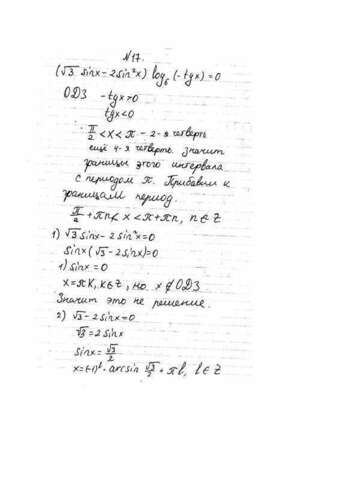 N17.
(√3 sinx - 2sin²x) log₆ (-tgx) = 0
ОДЗ -tgx>0
tgx<0
π/2 < x < π - 2-я четверть
ещё 4-я четверть. Значит
границы этого интервала
с периодом π. Прибавим к
границам период.
π/2 + πn < x < π + πn, n ∈ Z
1) √3 sinx - 2sin²x = 0
sinx (√3 - 2sinx) = 0
1) sinx = 0
x = πk, k ∈ Z, но x ∉ ОДЗ
Значит это не решение.
2) √3 - 2sinx = 0
√3 = 2sinx
sinx = √3/2
x = (-1)ˡ · arcsin √3/2 + πl, l ∈ Z